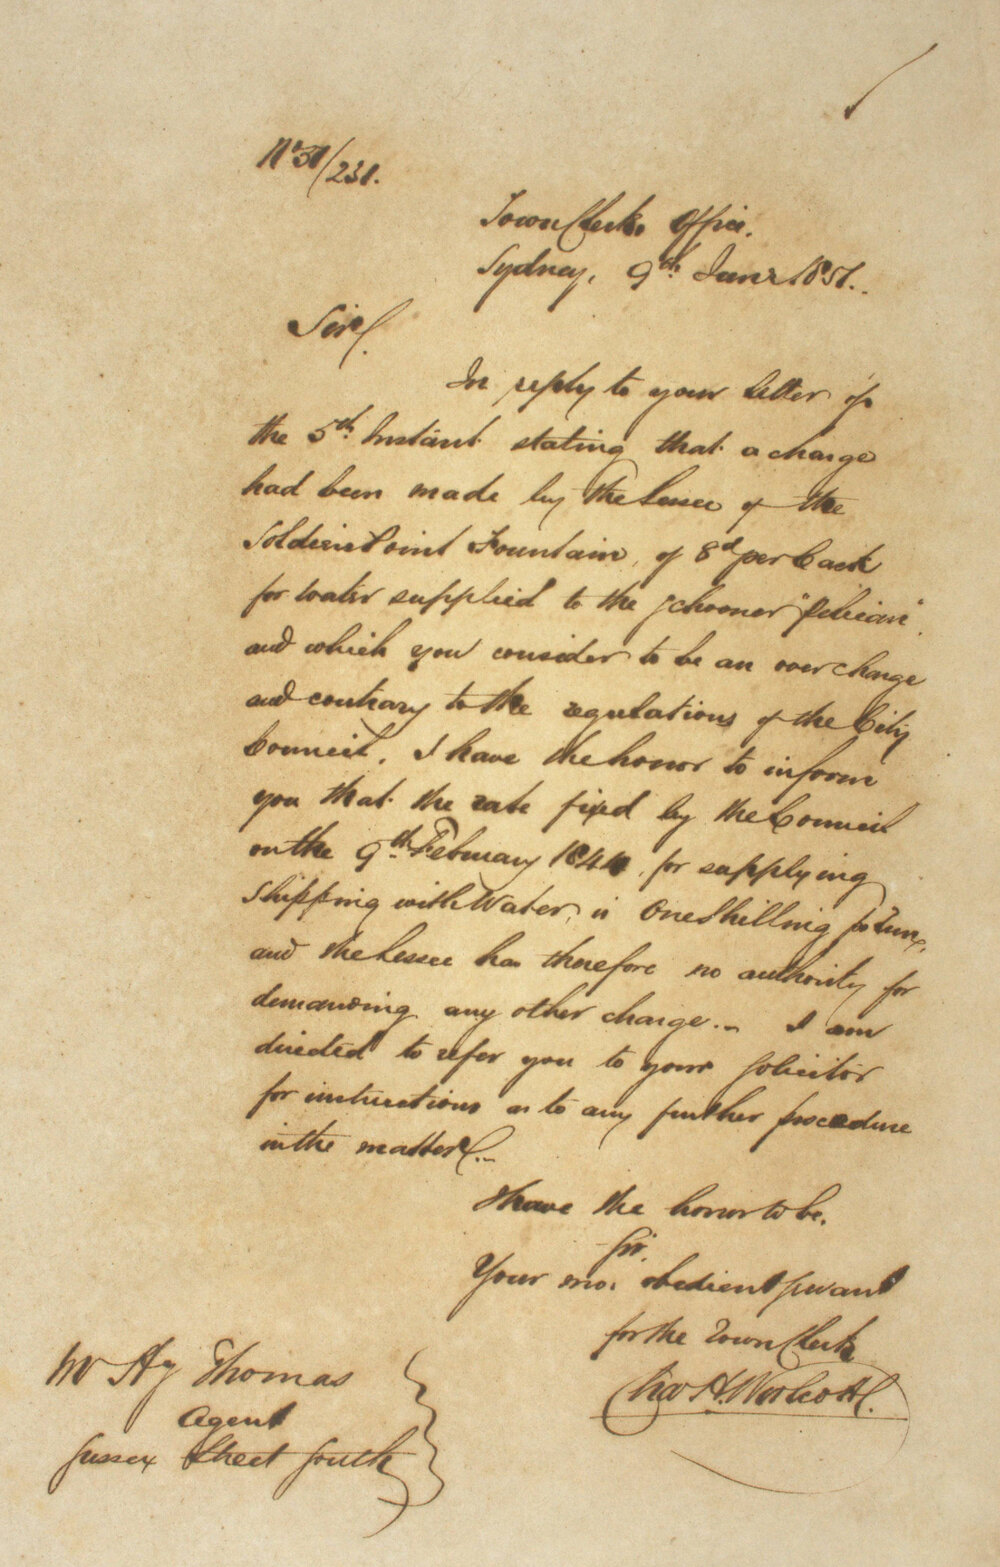 No 51/231.
Town Clerks Office.
Sydney, 9th June 1851.
Sir,
In reply to your letter of
the 5th Instant stating that a charge
had been made by the Lessee of the
Soldiers Point Fountain, of 8d per Cask
for water supplied to the Schooner "Pelican"
and which you consider to be an over charge
and contrary to the regulations of the City
Council, I have the honor to inform
you that the rate fixed by the Council
on the 9th February 1844, for supplying
Shipping with Water, is One Shilling pr Tun,
and the Lessee has therefore no authority for
demanding any other charge.. I am
directed to refer you to your Solicitor
for instructions as to any further procedure
in the matter..
I have the honor to be,
Sir,
Your mo. obedient Servant
for the Town Clerk
Chas H. Woolcott.
Mr Hy Thomas
Agent
Sussex Street South